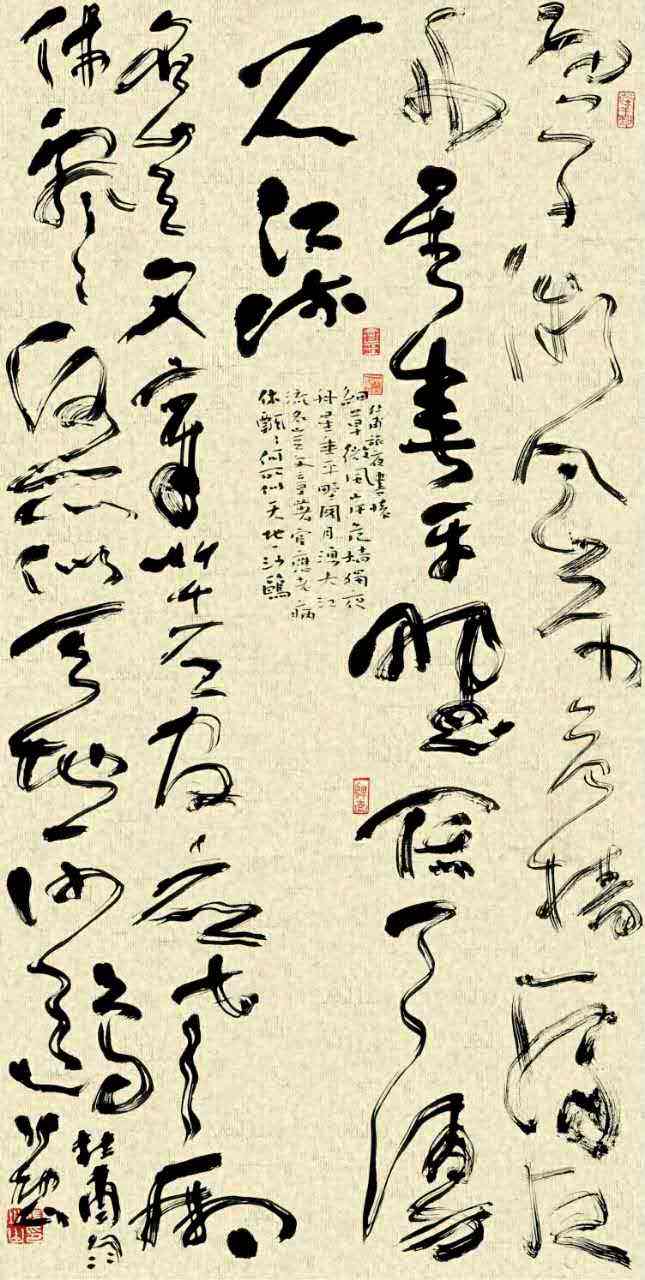 細草微風岸危檣獨夜
舟星垂平野闊月湧
大江流
杜甫旅夜書懷
細草微風岸危檣獨夜
舟星垂平野闊月湧大江
流名豈文章著官應老病
休飄〻何所似天地一沙鷗
名豈文章著官應老病
休飄〻何所似天地一沙鷗
杜甫詩